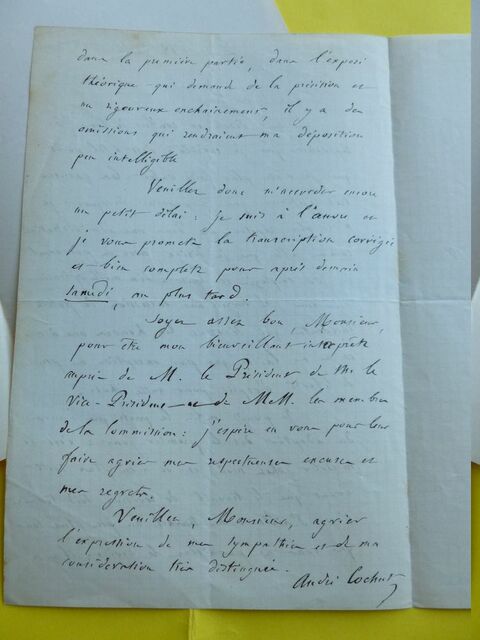 dans la première partie, dans l'exposi
théorique qui demande de la précision et
un rigoureux enchaînement, il y a des
omissions qui rendraient ma déposition
peu intelligible
Veuillez donc m'accorder encore
un petit délai : je suis à l'œuvre et
je vous promets la transcription corrigée
et bien complète pour après demain
samedi, au plus tard.
Soyez assez bon, Monsieur,
pour être mon bienveillant interprète
auprès de M. le Président de Mr le
Vice-Président et de MM. les membres
de la Commission : j'espère en vous pour leur
faire agréer mes respectueuses excuses et
mes regrets.
Veuillez, Monsieur, agréer
l'expression de mes sympathies et de ma
considération très distinguée.
André Cochut